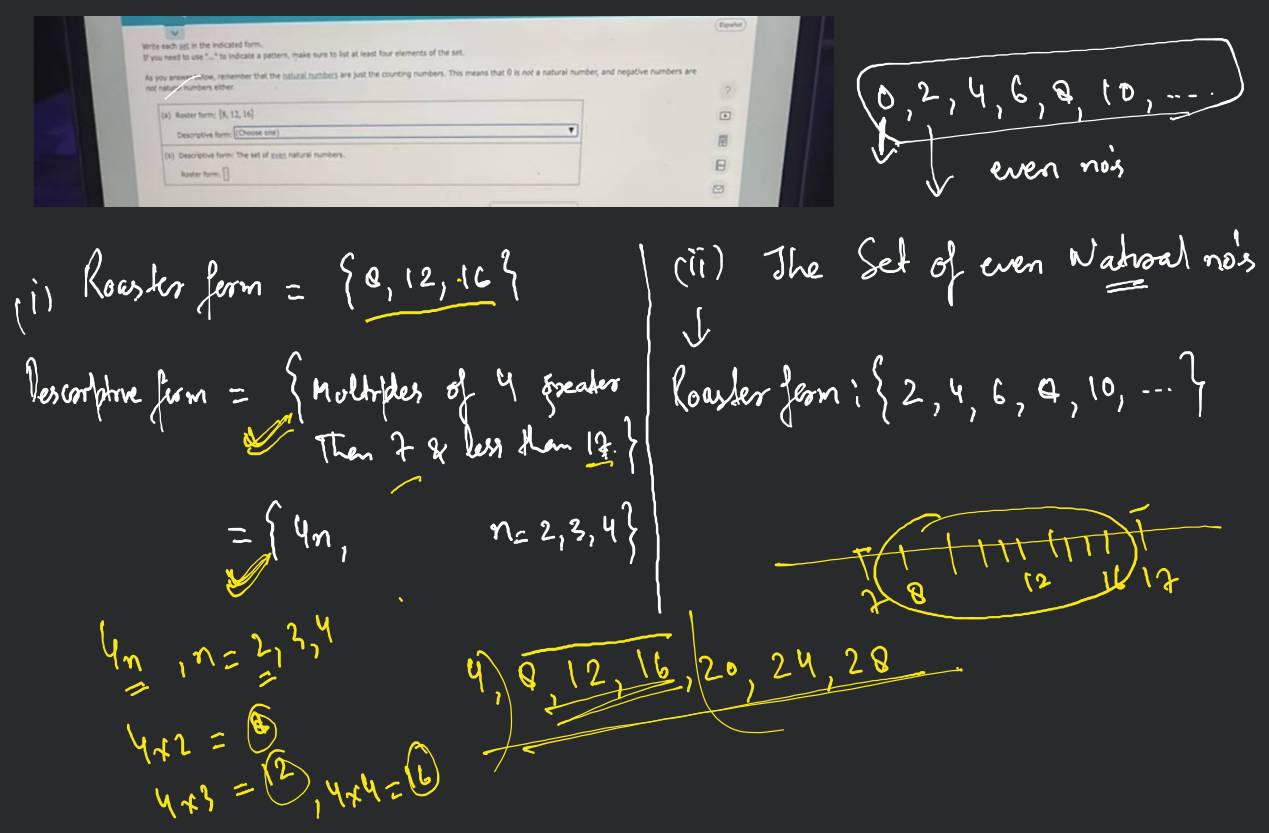 Español
Write each set in the indicated form.
If you need to use "..." to indicate a pattern, make sure to list at least four elements of the set.
As you answer below, remember that the natural numbers are just the counting numbers. This means that 0 is not a natural number, and negative numbers are
not natural numbers either.
(a) Roster form: {8, 12, 16}
Descriptive form: (Choose one)
(b) Descriptive form: The set of even natural numbers.
Roster form:
0, 2, 4, 6, 8, 10, ....
even no's
(i) Roaster form = {8, 12, 16}
Descorptive form = {Moltiples of 4 greater
Then 7 & less than 17.}
= {4n, n= 2,3,4}
(ii) The Set of even Natural no's
Roaster form : {2, 4, 6, 8, 10, ...}
7 8 12 16 17
4n , n= 2,3,4
4x2 = 8
4x3 = 12 , 4x4=16
4, 8, 12, 16, 20, 24, 28